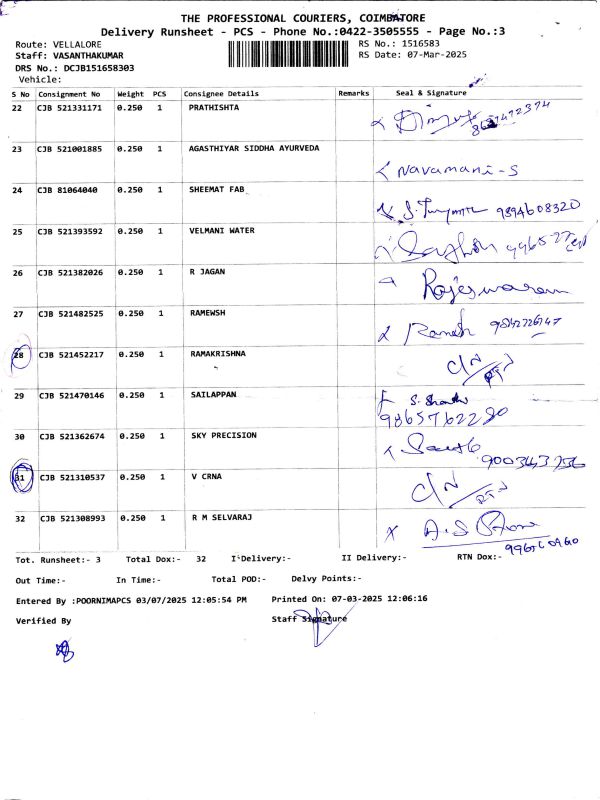 THE PROFESSIONAL COURIERS, COIMBATORE
Delivery Runsheet - PCS - Phone No.:0422-3505555 - Page No.:3
Route: VELLALORE RS No.: 1516583
Staff: VASANTHAKUMAR RS Date: 07-Mar-2025
DRS No.: DCJB151658303
Vehicle:
S No Consignment No Weight PCS Consignee Details Remarks Seal & Signature
22 CJB 521331171 0.250 1 PRATHISHTA
23 CJB 521001885 0.250 1 AGASTHIYAR SIDDHA AYURVEDA Navamani-S
24 CJB 81064040 0.250 1 SHEEMAT FAB 9894608320
25 CJB 521393592 0.250 1 VELMANI WATER
26 CJB 521382026 0.250 1 R JAGAN Rajeswaram
27 CJB 521482525 0.250 1 RAMEWSH Ramesh 9842726747
28 CJB 521452217 0.250 1 RAMAKRISHNA C/N RTN
29 CJB 521470146 0.250 1 SAILAPPAN
30 CJB 521362674 0.250 1 SKY PRECISION
31 CJB 521310537 0.250 1 V CRNA C/N RTN
32 CJB 521308993 0.250 1 R M SELVARAJ
Tot. Runsheet:- 3 Total Dox:- 32 I Delivery:- II Delivery:- RTN Dox:-
Out Time:- In Time:- Total POD:- Delvy Points:-
Entered By :POORNIMAPCS 03/07/2025 12:05:54 PM Printed On: 07-03-2025 12:06:16
Verified By Staff Signature